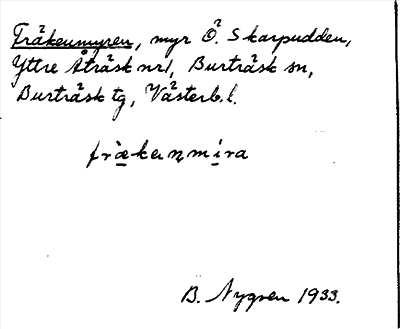 Fräkenmyren, myr Ö. Skarpudden,
Yttre Åträsk nr1, Burträsk sn,
Burträsk tg, Västerb. l.
fræ̀kanmi̠ra
B. Nygren 1933.